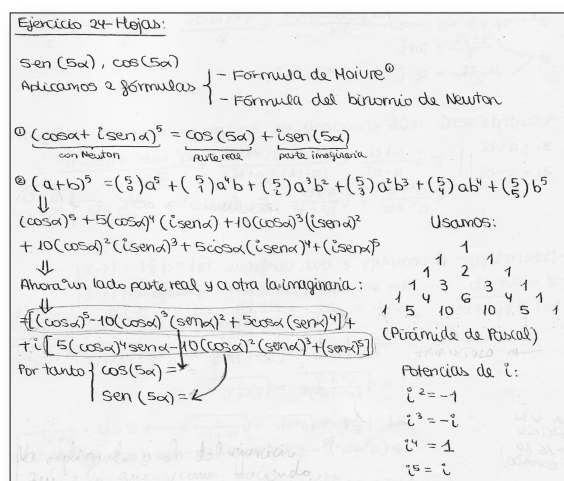 Ejercicio 24-Hojas:
sen (5α), cos(5α)
Aplicamos 2 fórmulas { - Fórmula de Moivre①
- Fórmula del binomio de Newton
① (cosα + i senα)⁵ = cos(5α) + i sen(5α)
con Newton parte real parte imaginaria
② (a+b)⁵ = (5 0)a⁵ + (5 1)a⁴b + (5 2)a³b² + (5 3)a²b³ + (5 4)ab⁴ + (5 5)b⁵
(cosα)⁵ + 5(cosα)⁴(i senα) + 10(cosα)³(i senα)²
+ 10(cosα)²(i senα)³ + 5cosα(i senα)⁴ + (i senα)⁵
⇓
Ahora a un lado parte real y a otra la imaginaria:
⇓
+[(cosα)⁵ - 10(cosα)³(senα)² + 5cosα(senα)⁴] +
+ i [5(cosα)⁴senα - 10(cosα)²(senα)³ + (senα)⁵]
Por tanto { cos(5α) =
sen (5α) =
Usamos:
1
1 1
1 2 1
1 3 3 1
1 4 6 4 1
1 5 10 10 5 1
(Pirámide de Pascal)
Potencias de i:
i² = -1
i³ = -i
i⁴ = 1
i⁵ = i